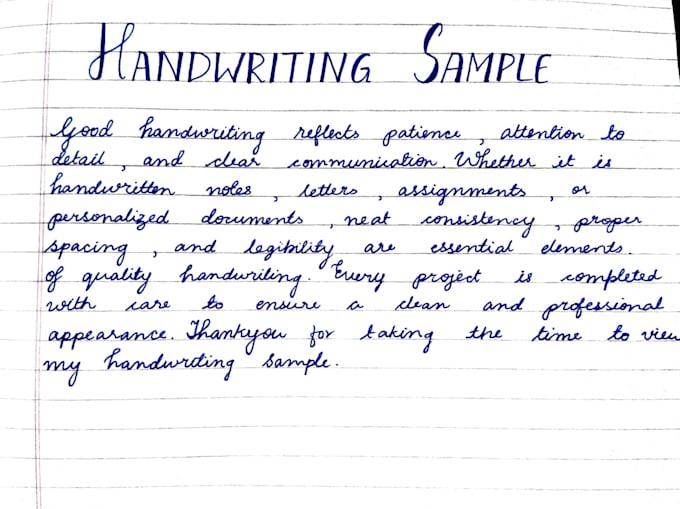 HANDWRITING SAMPLE
Good handwriting reflects patience , attention to
detail , and clear communication. Whether it is
handwritten notes , letters , assignments , or
personalized documents , neat consistency , proper
spacing , and legibility are essential elements.
of quality handwriting. Every project is completed
with care to ensure a clean and professional
appearance. Thankyou for taking the time to view
my handwriting sample.